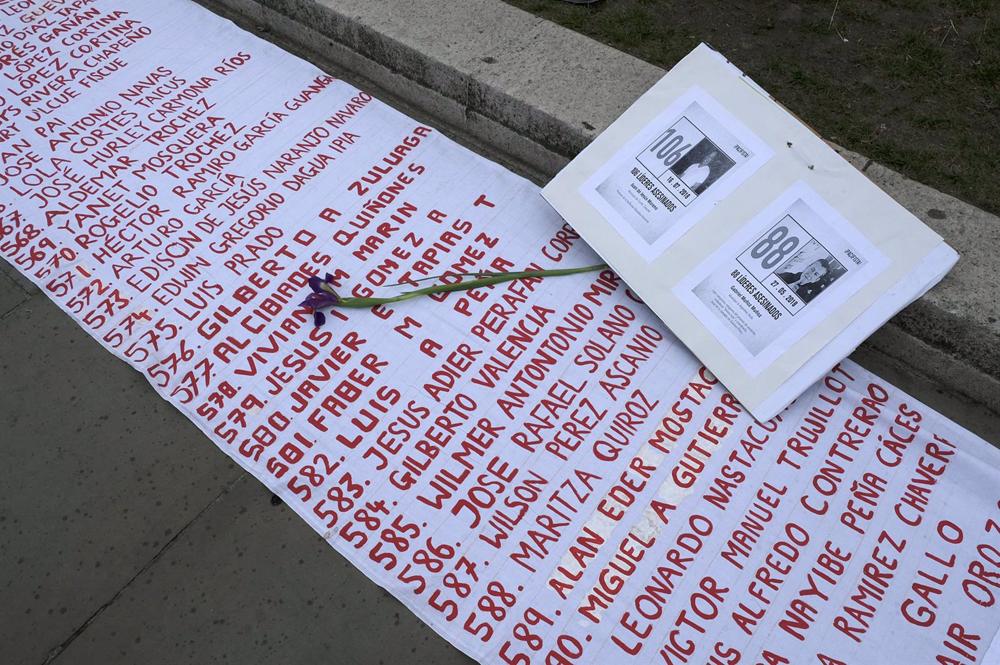 LÓPEZ CORINA
LÓPEZ CORTINA
RIVERA CHAPEÑO
ULCUE FISCUE
PAI
JOSE ANTONIO NAVAS
OLA CORTES TAICUS
JOSÉ HURLEY CARMONA RÍOS
568 ADEMAR TROCHEZ
569 YANET MOSQUERA
570 ROGELIO TROCHEZ
571 HÉCTOR RAMIRO GARCÍA
572. ARTURO GARCÍA
573 EDISON DE JESÚS NARANJO NAVARO
574 EDWIN GREGORIO DAGUA IPIA
575. LUIS PRADO
576. GILBERTO A ZULUAGA
577 ALCIBIADES QUIÑONES
578 VIVIAN M MARIN
579. JESUS E GOMEZ A
580. JAVIER TAPIAS T
581 FABER M GOMEZ
582. LUIS A PEÑA
583. JESUS ADIER PERAFAN
584. GILBERTO VALENCIA
585. WILMER ANTONTONIO MIR
586. JOSE RAFAEL SOLANO
587. WILSON PEREZ ASCANIO
588. MARITZA QUIROZ
589. ALAN EDER MOSTAC
90. MIGUEL A GUTIERRE
LEONARDO NASTACU
VICTOR MANUEL TRUJILLO
ALFREDO CONTRERO
NAYIBE PEÑA CÁCES
RAMIREZ CHAVERÍ
GALLO
AIR OROZ
106
19.07.2018
106 LÍDERES ASESINADOS
88
27.05.2018
88 LÍDERES ASESINADOS